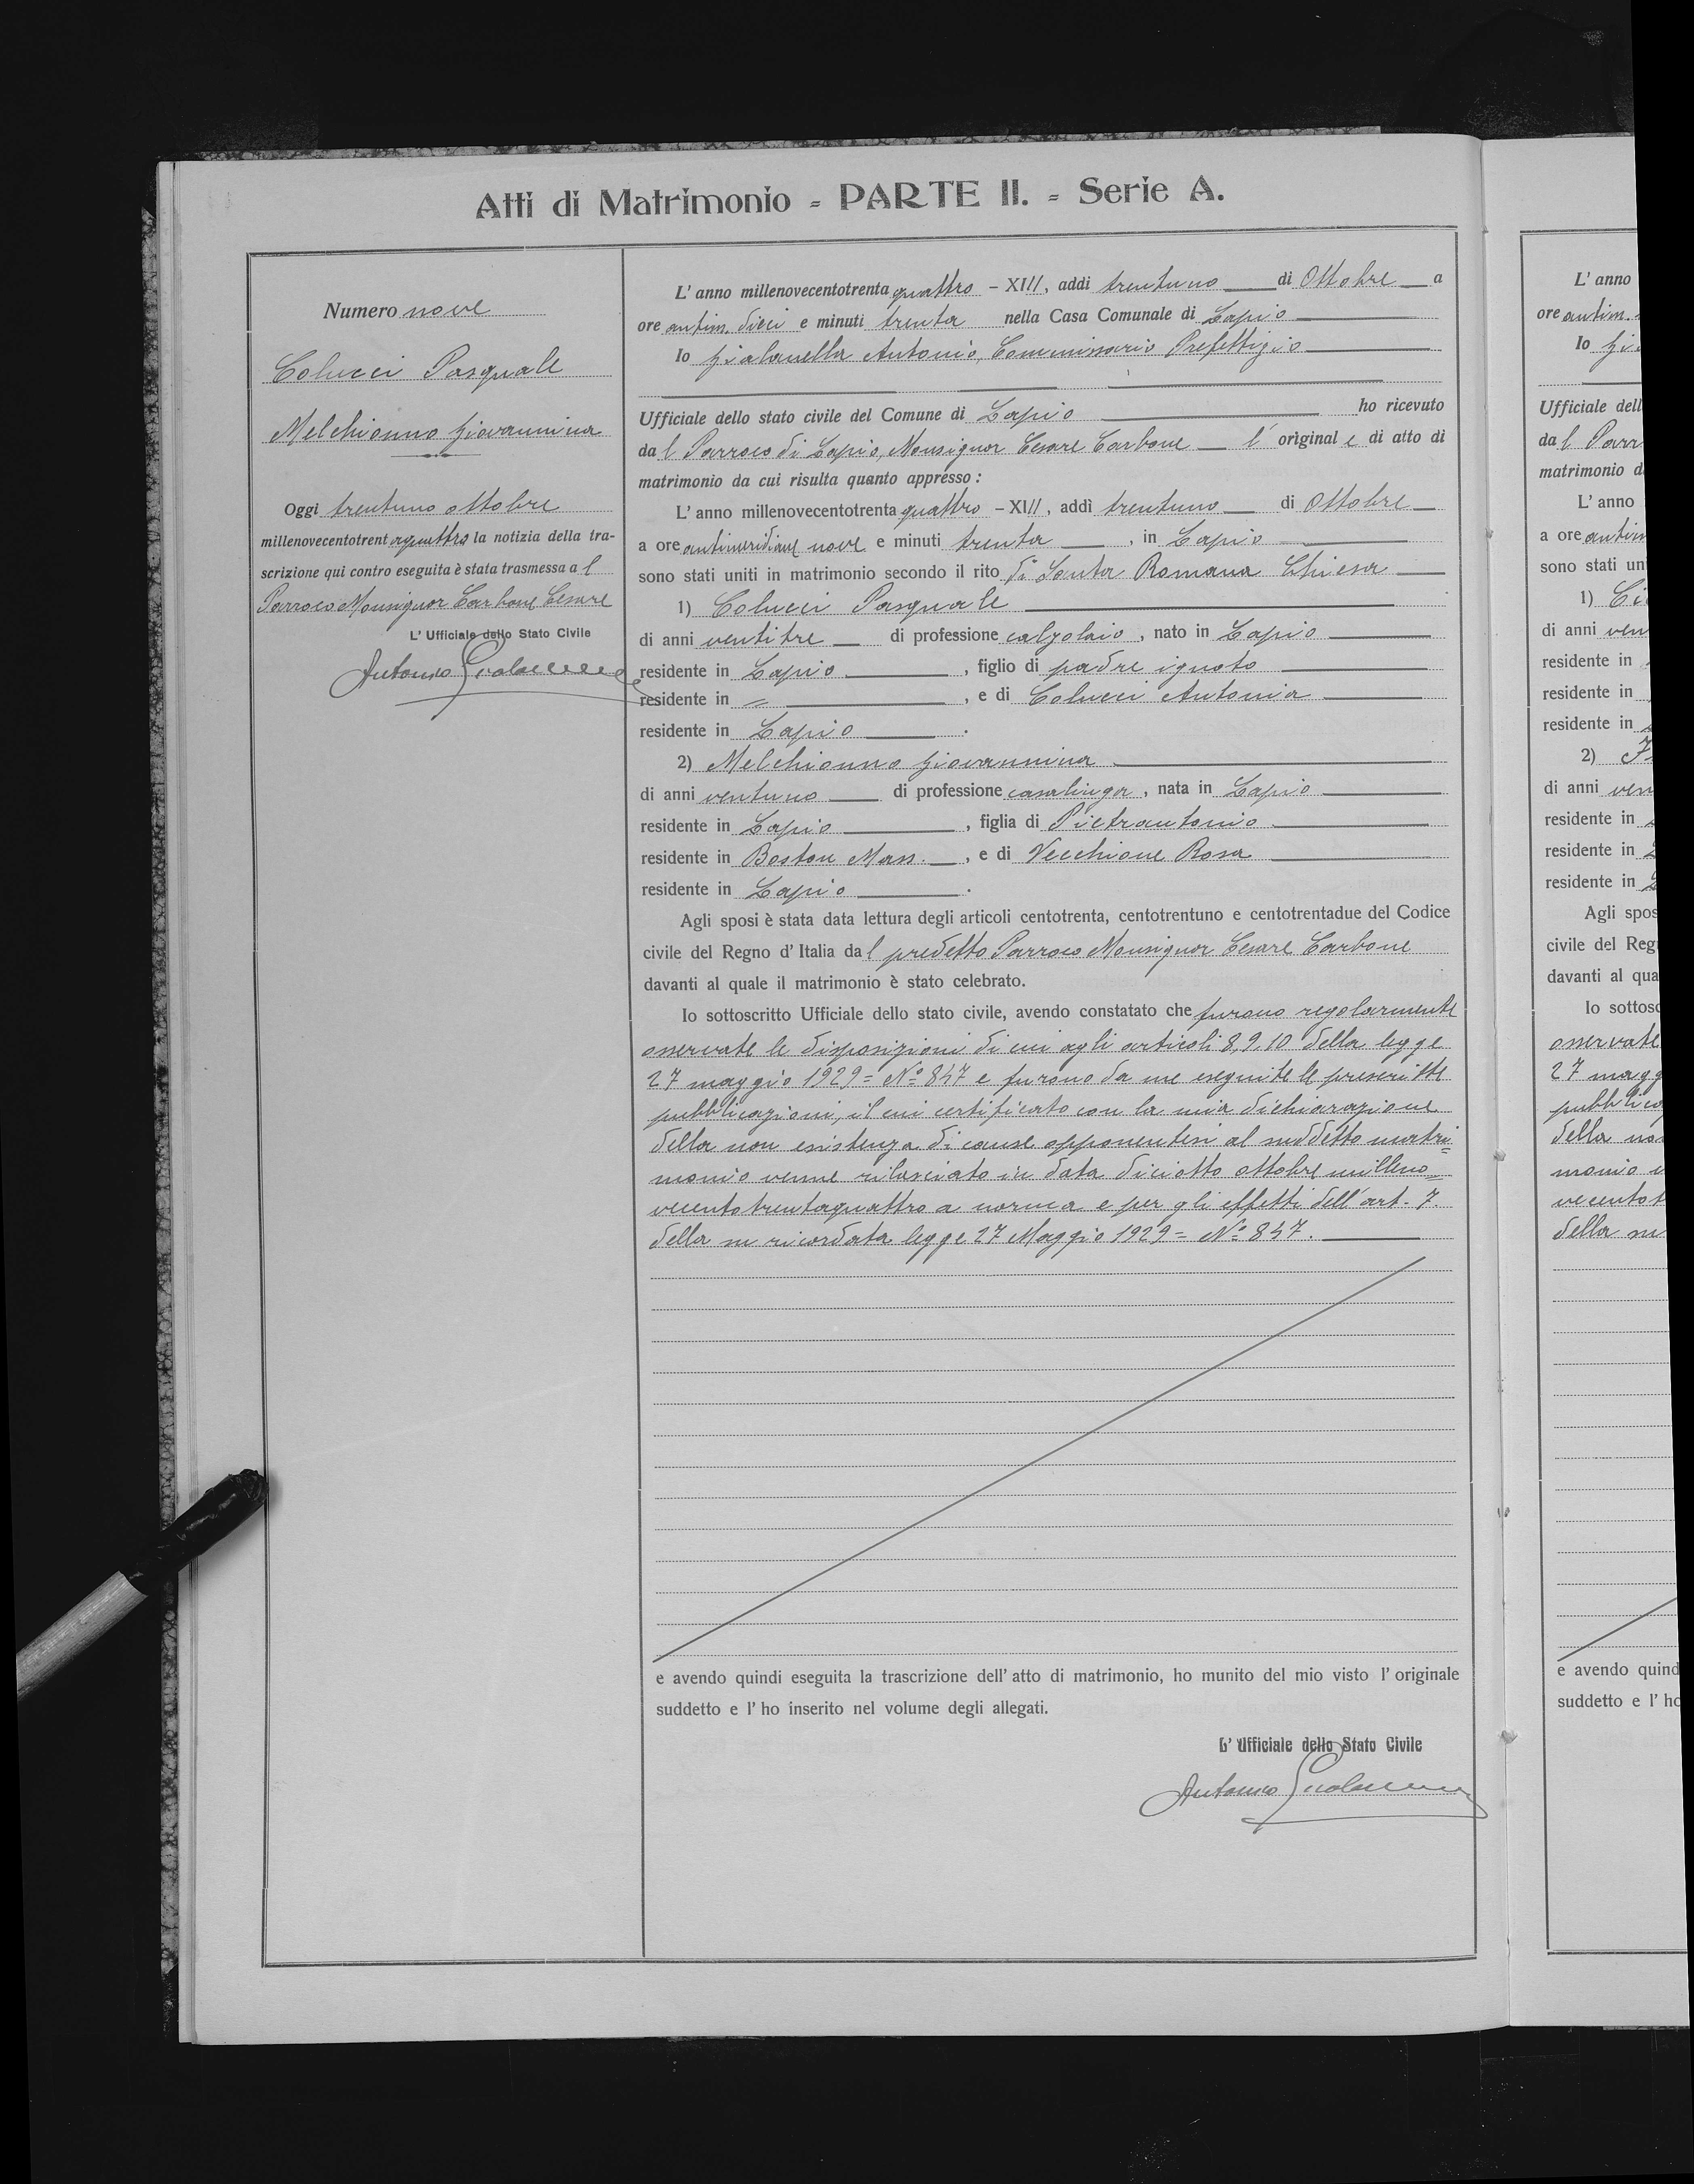 Atti di Matrimonio - PARTE II. - Serie A.
Numero nove
Colucci Pasquale
Melchionno Giovannina
Oggi trentuno ottobre
millenovecentotrentaquattro la notizia della tra-
scrizione qui contro eseguita è stata trasmessa al
Parroco Monsignor Carbone Cesare
L' Ufficiale dello Stato Civile
Antonio Gialanella
L' anno millenovecentotrentaquattro - XIII, addi trentuno di Ottobre a
ore antim. dieci e minuti trenta nella Casa Comunale di Lapio
Io Gialanella Antonio, Commissario Prefettizio
Ufficiale dello stato civile del Comune di Lapio ho ricevuto
dal Parroco di Lapio, Monsignor Cesare Carbone l' originale di atto di
matrimonio da cui risulta quanto appresso :
L' anno millenovecentotrentaquattro - XIII, addi trentuno di Ottobre
a ore antimeridiane nove e minuti trenta , in Lapio
sono stati uniti in matrimonio secondo il rito di Santa Romana Chiesa
1) Colucci Pasquale
di anni ventitre di professione calzolaio, nato in Lapio
residente in Lapio , figlio di padre ignoto
residente in = , e di Colucci Antonia
residente in Lapio .
2) Melchionno Giovannina
di anni ventuno di professione casalinga, nata in Lapio
residente in Lapio , figlia di Pietrantonio
residente in Boston Mass. , e di Vecchione Rosa
residente in Lapio .
Agli sposi è stata data lettura degli articoli centotrenta, centotrentuno e centotrentadue del Codice
civile del Regno d' Italia dal predetto Parroco Monsignor Cesare Carbone
davanti al quale il matrimonio è stato celebrato.
Io sottoscritto Ufficiale dello stato civile, avendo constatato che furono regolarmente
osservate le disposizioni di cui agli articoli 8, 9, 10 della legge
27 maggio 1929 = Nº 847 e furono da me eseguite le prescritte
pubblicazioni, il cui certificato con la mia dichiarazione
della non esistenza di cause opponentesi al suddetto matri=
monio venne rilasciato in data diciotto ottobre milleno=
vecentotrentaquattro a norma e per gli effetti dell'art. 7.
della su ricordata legge 27 Maggio 1929 = Nº 847.
e avendo quindi eseguita la trascrizione dell' atto di matrimonio, ho munito del mio visto l' originale
suddetto e l' ho inserito nel volume degli allegati.
L' Ufficiale dello Stato Civile
Antonio Gialanella
L' anno
ore antim.
Io
Ufficiale dell
dal Parr
matrimonio d
L' anno
a ore antim
sono stati un
1)
di anni ven
residente in
residente in
residente in
2)
di anni ven
residente in
residente in
residente in
Agli spos
civile del Reg
davanti al qua
Io sottosc
osservate
27 magg
pubblica
della no
monio
vecentot
della su
e avendo quind
suddetto e l' ho